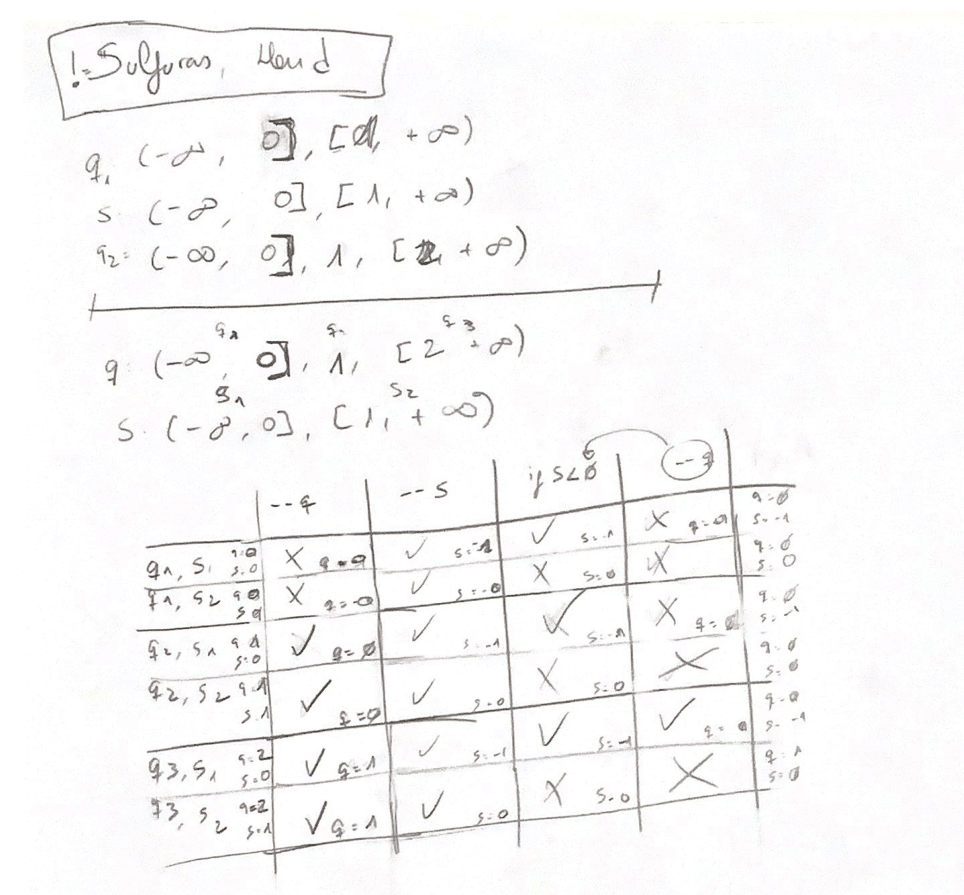 != Sulfuras, Hand
q1 (-∞, 0], [1, +∞)
s (-∞, 0], [1, +∞)
q2= (-∞, 0], 1, [2, +∞)
q1 q2 q3
q: (-∞, 0], 1, [2, +∞)
s1 s2
s: (-∞, 0], [1, +∞)
--q --s if s<0 --q
q1, s1 q=0 s=0 X q=0 ✓ s=-1 ✓ s=-1 X q=0 q=0 s=-1
q1, s2 q=0 X q=0 ✓ s=0 X s=0 X q=0 s=0
q2, s1 q=1 s=0 ✓ q=0 ✓ s=-1 ✓ s=-1 X q=0 q=0 s=-1
q2, s2 q=1 s=1 ✓ q=0 ✓ s=0 X s=0 X q=0 s=0
q3, s1 q=2 s=0 ✓ q=1 ✓ s=-1 ✓ s=-1 ✓ q=0 q=0 s=-1
q3, s2 q=2 s=1 ✓ q=1 ✓ s=0 X s=0 X q=1 s=0